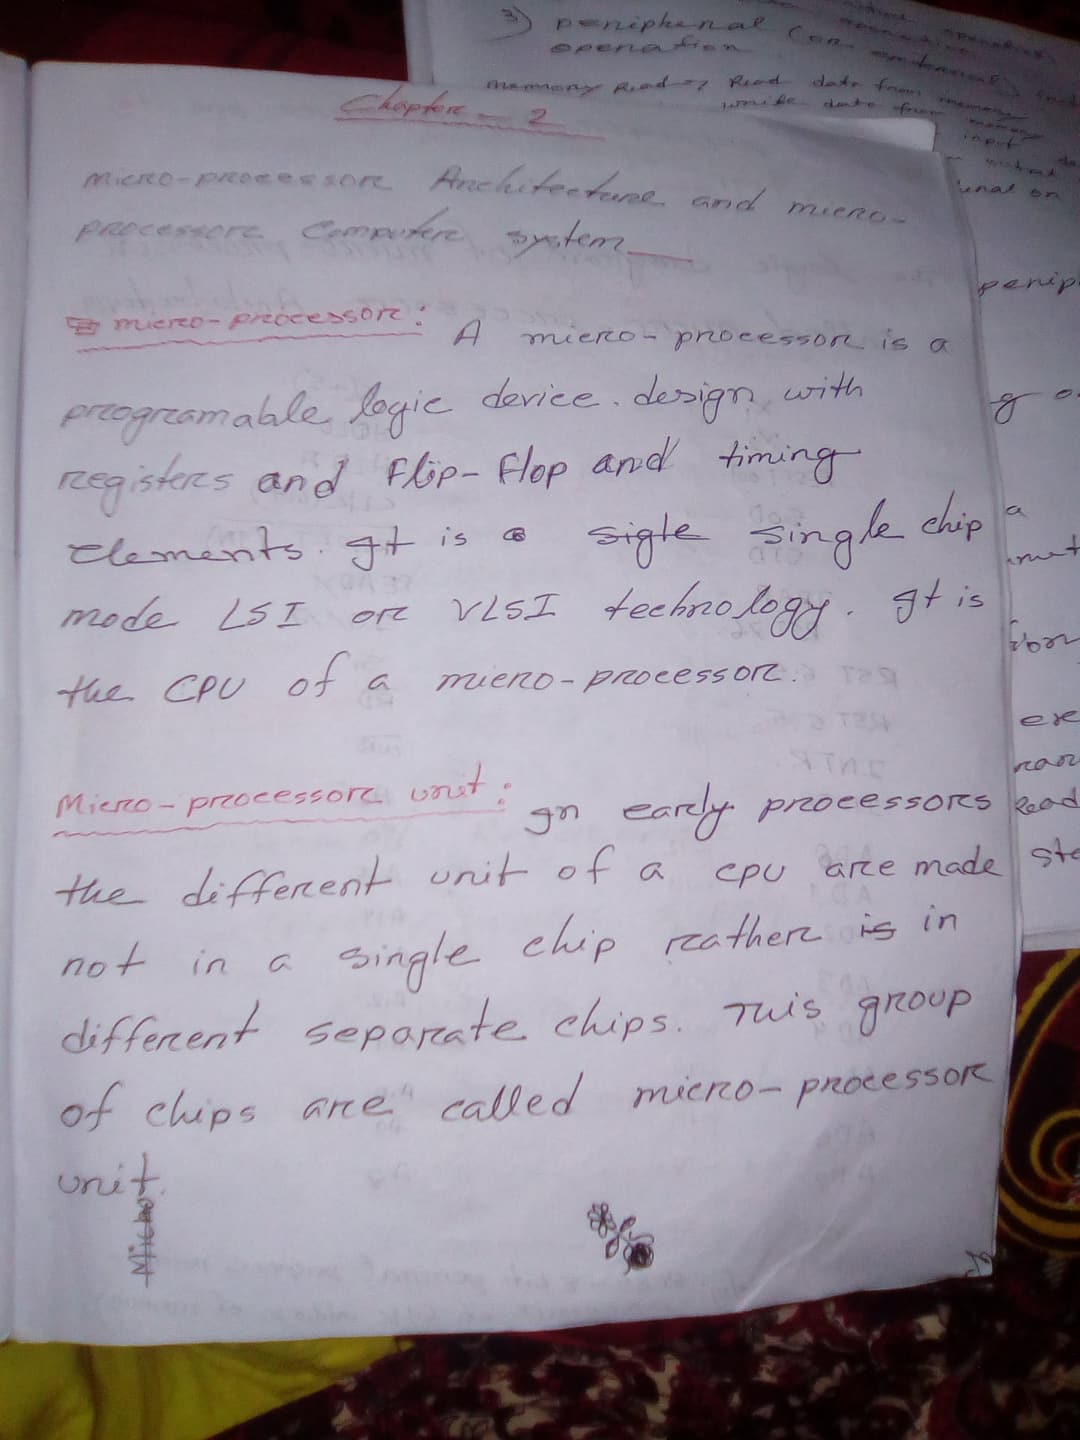 3) peripheral (or external)
operation
memory Read → Read data from memory
write data from memory
input
Chapter - 2
micro-processor Architecture and micro-
processor Computer system
micro-processor: A micro-processor is a
programable logic device. design with
registers and Flip-Flop and timing
elements. It is a sigle single chip
mode LSI or VLSI technology. It is
the CPU of a micro-processor.
Micro-processor unit: In early processors
the different unit of a cpu are made
not in a single chip rather is in
different separate chips. This group
of chips are called micro-processor
unit.